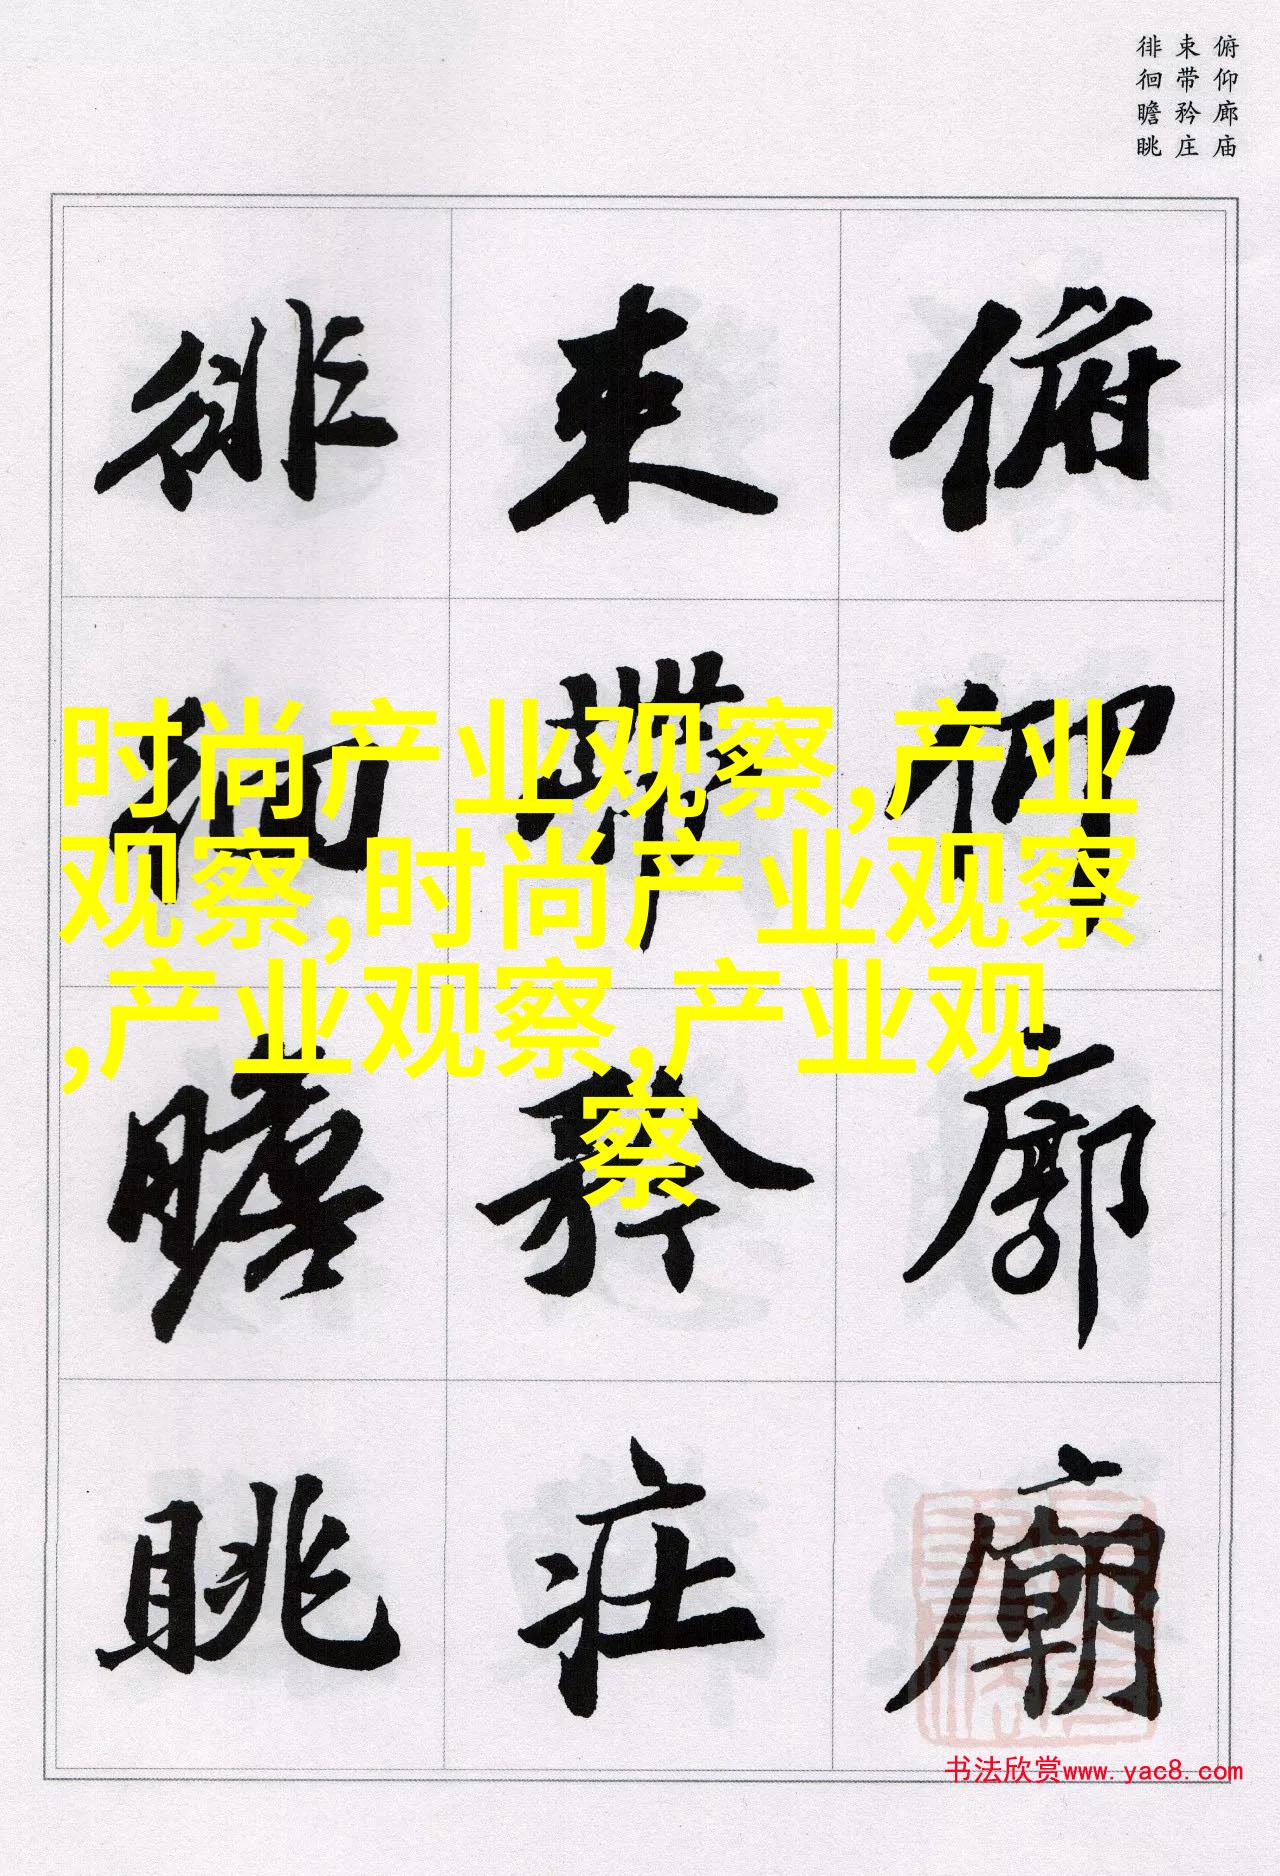 俯仰廊庙
束带矜庄
徘徊瞻眺
俯仰廊廟
束帶矜莊
徘徊瞻眺
时尚产业观察,产业
观察,时尚产业观察
,产业观察,产业观
察
书法欣赏www.yac8.com